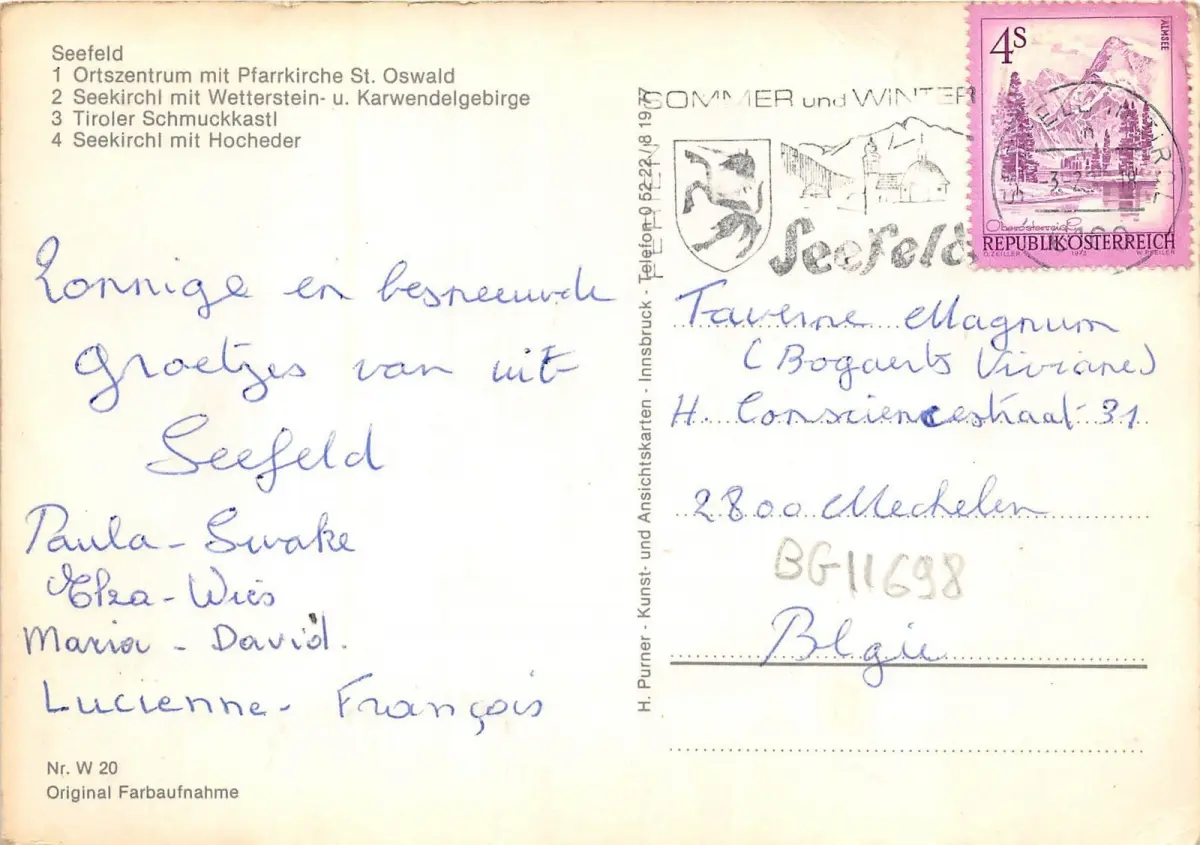 Seefeld
1 Ortszentrum mit Pfarrkirche St. Oswald
2 Seekirchl mit Wetterstein- u. Karwendelgebirge
3 Tiroler Schmuckkastl
4 Seekirchl mit Hocheder
Zonnige en besneeuwde
Groetjes van uit
Seefeld
Paula - Swake
Elza - Wies
Maria - David.
Lucienne - François
Nr. W 20
Original Farbaufnahme
H. Purner - Kunst- und Ansichtskarten - Innsbruck - Telefon 0 52 22 / 8 19 77
SOMMER und WINTER
Seefeld
4S
ALMSEE
Oberösterreich
REPUBLIK ÖSTERREICH
O. ZEILLER 1973 W. PFEILER
Taverne Magnum
(Bogaerts Viviane)
H. Consciencestraat 31
2800 Mechelen
BG11698
Blgie